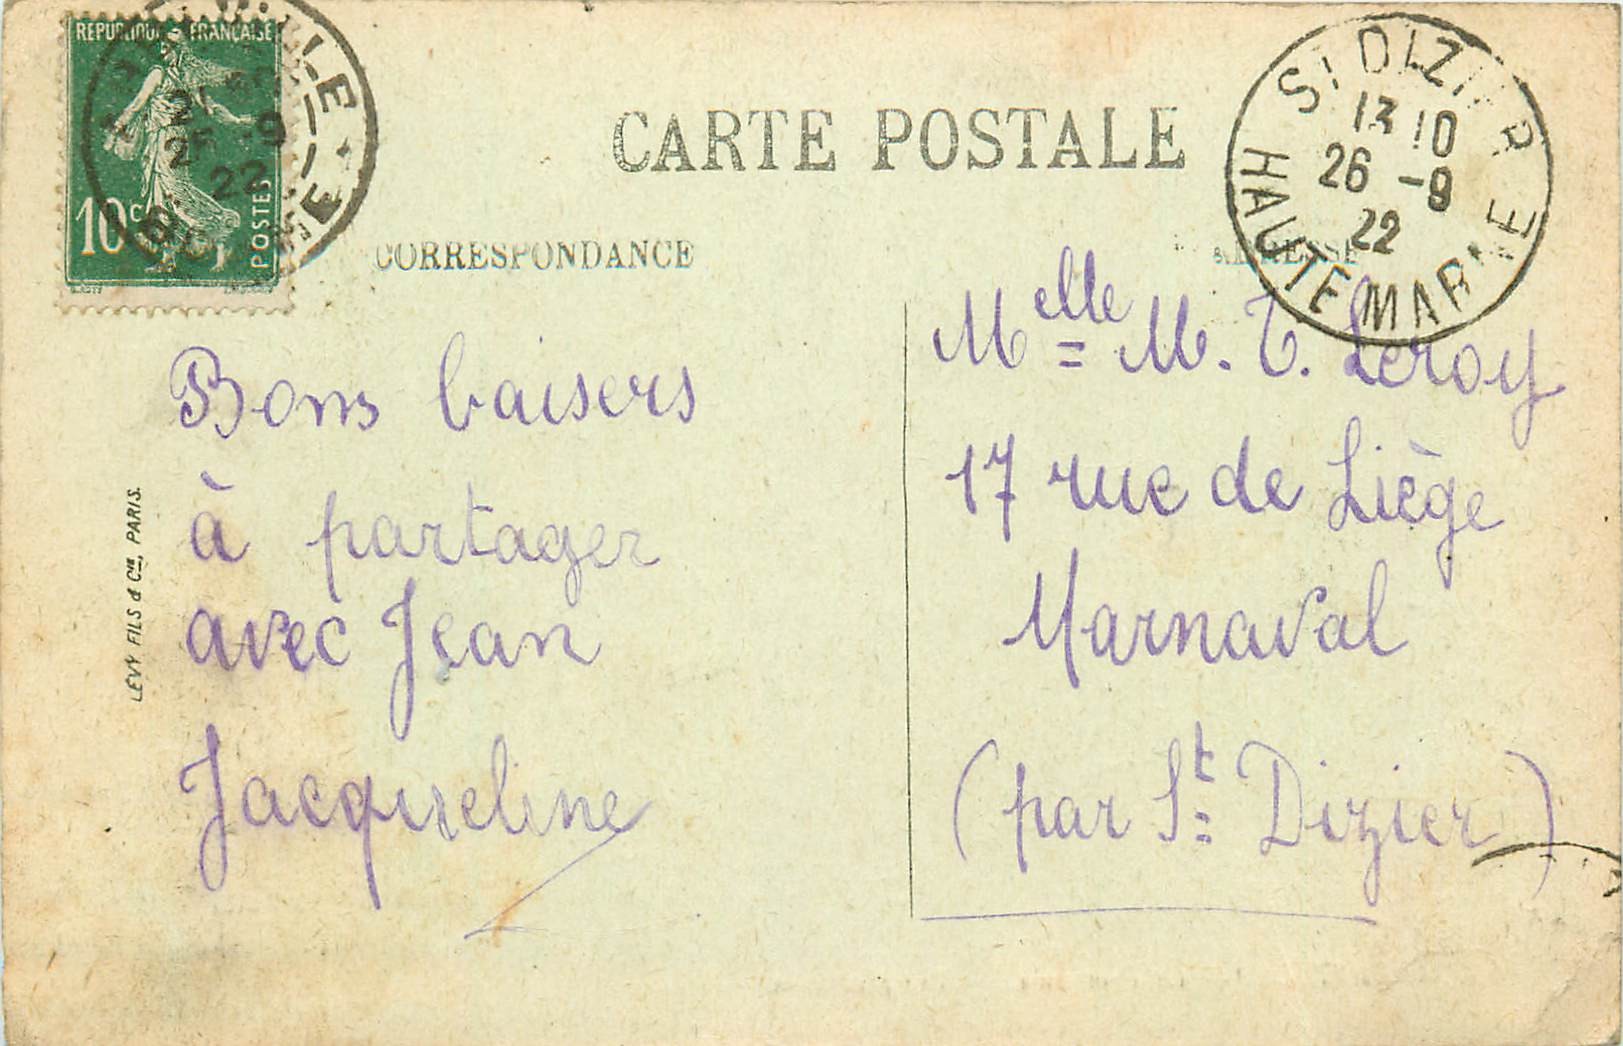 REPUBLIQUE FRANÇAISE
10c
POSTES
22
CARTE POSTALE
St DIZIER
13 10
26 -9
22
HAUTE MARNE
CORRESPONDANCE
ADRESSE
Bons baisers
à partager
avec Jean
Jacqueline
LEVY FILS & Cie, PARIS.
Melle M. T. Leroy
17 rue de Liège
Marnaval
(par St Dizier)